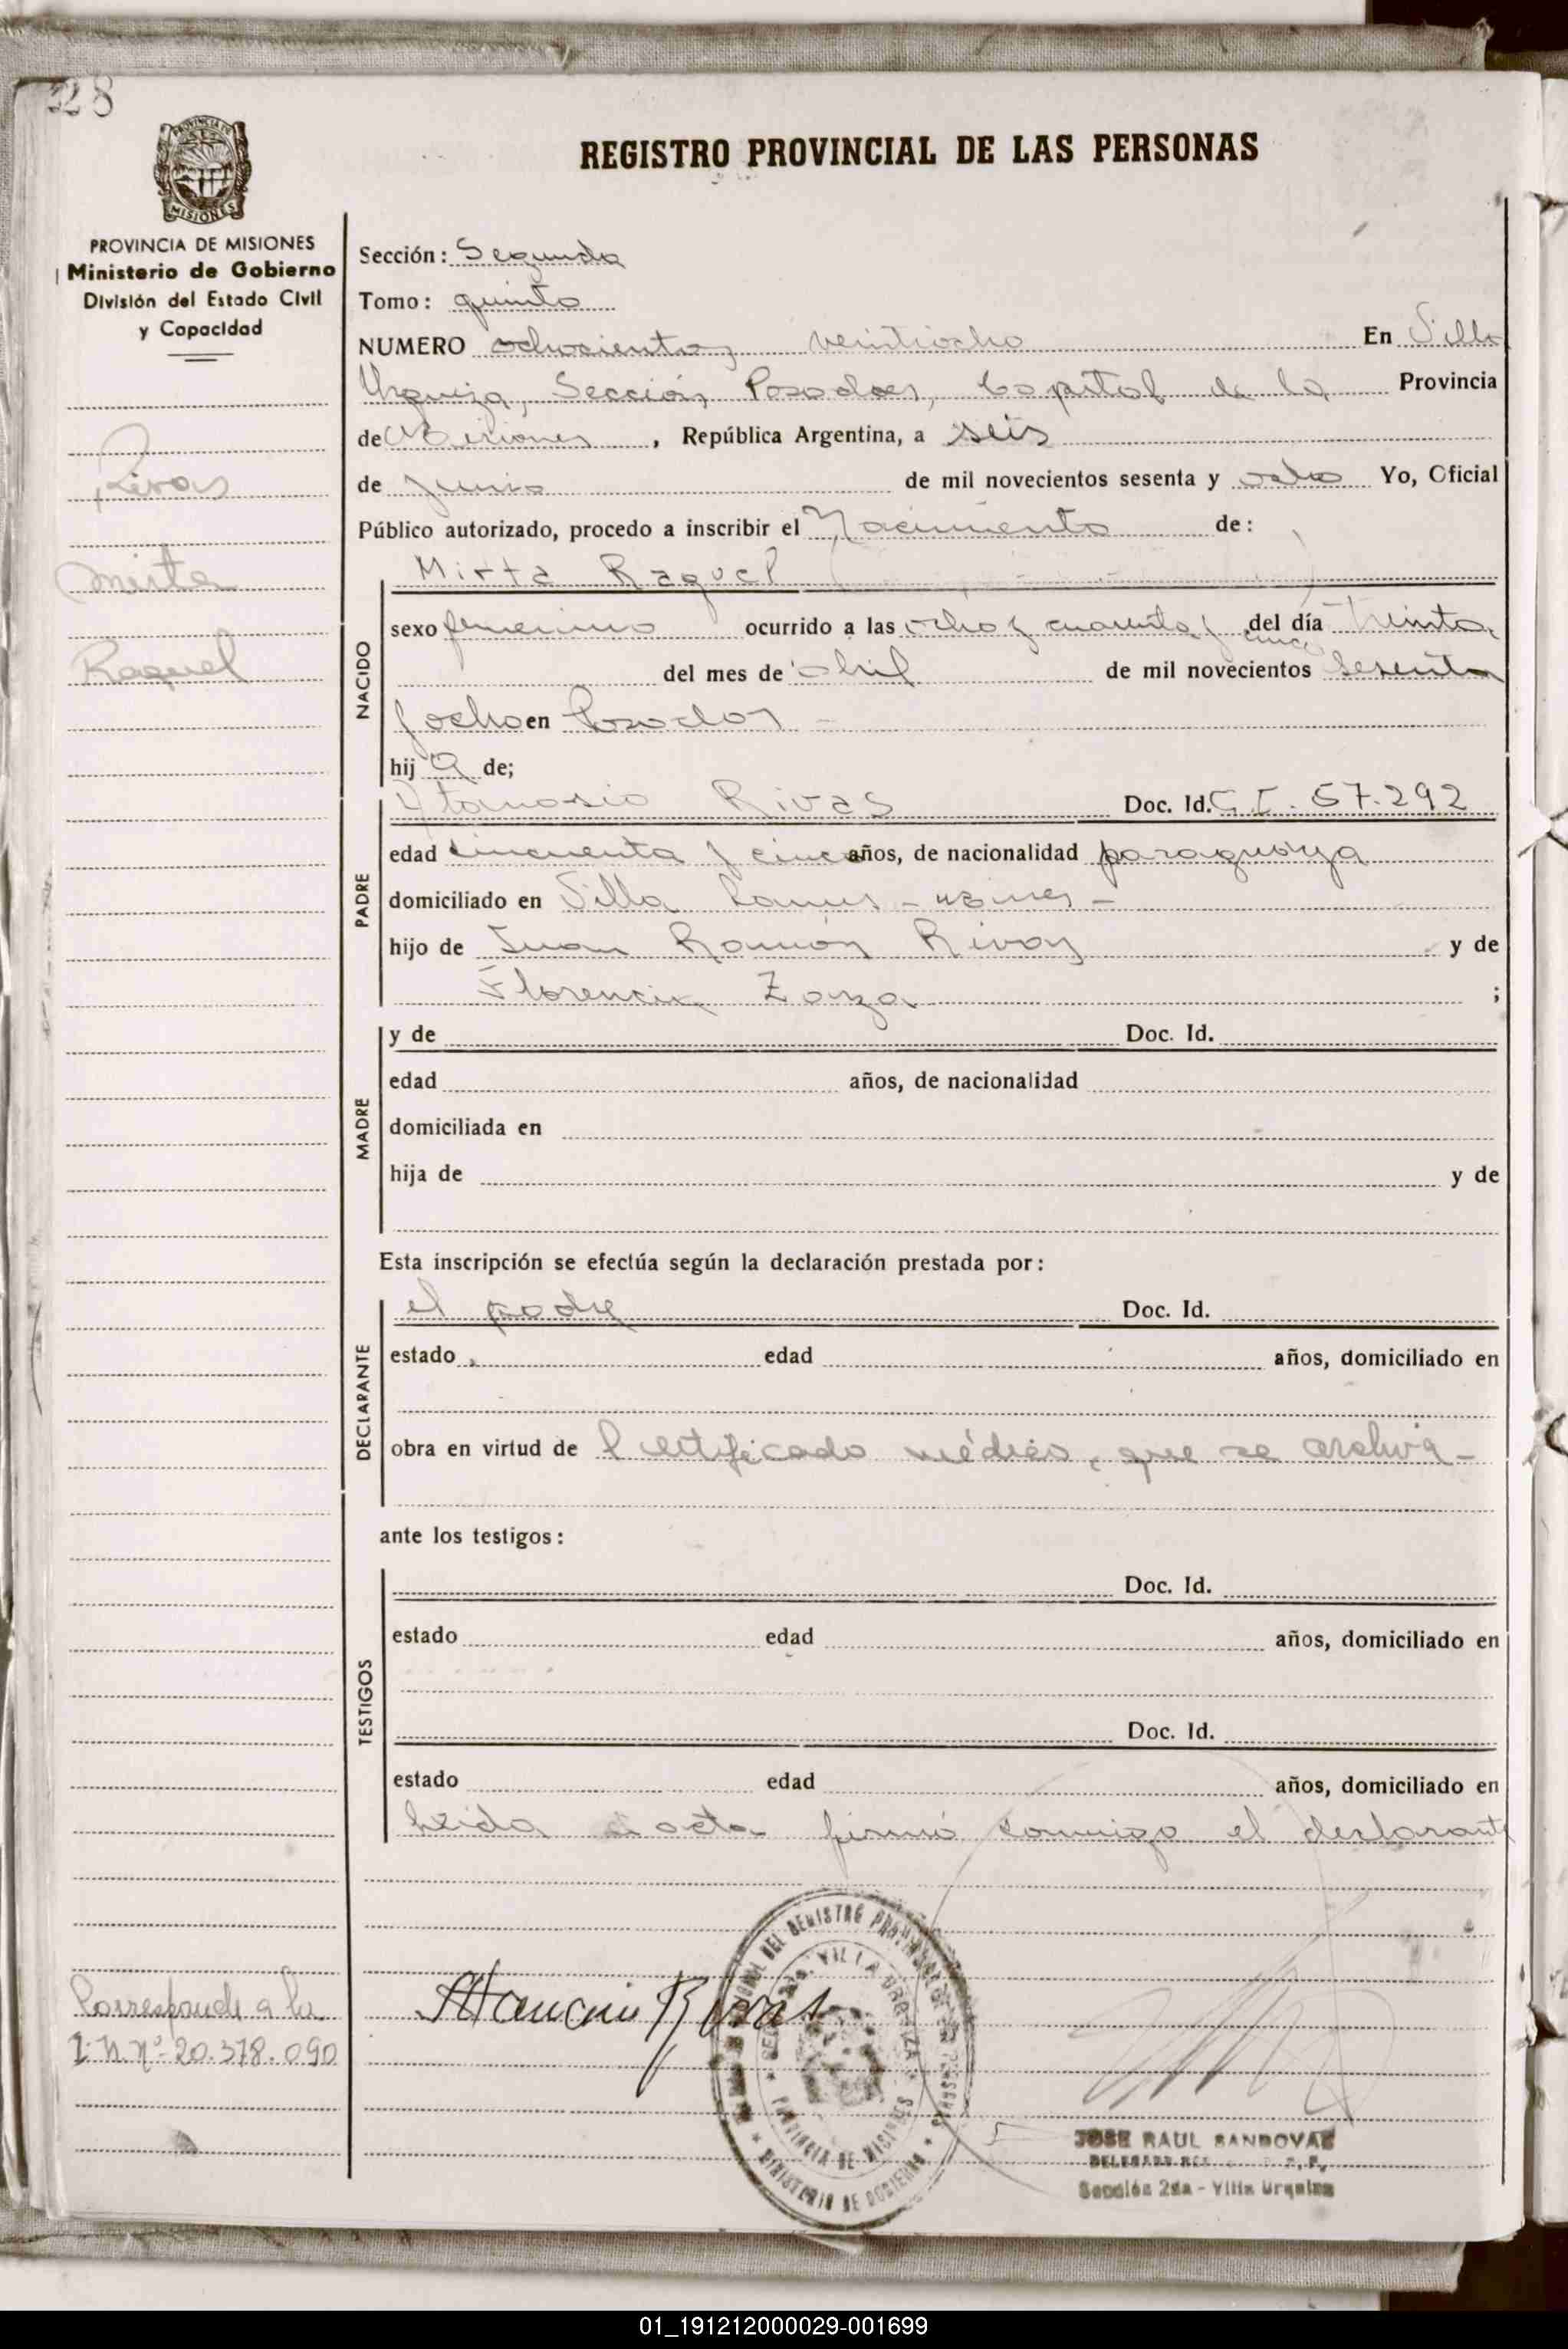 28
PROVINCIA DE MISIONES
Ministerio de Gobierno
División del Estado Civil
y Capacidad
Rivas
Mirta
Raquel
Corresponde a la
I.N.nº 20.378.090
REGISTRO PROVINCIAL DE LAS PERSONAS
Sección: Segunda
Tomo: quinto
NUMERO ochocientos veintiocho En Villa
Urquiza, Sección Posadas, Capital de la Provincia
de Misiones, República Argentina, a seis
de Junio de mil novecientos sesenta y ocho Yo, Oficial
Público autorizado, procedo a inscribir el Nacimiento de:
NACIDO
Mirta Raquel
sexo femenino ocurrido a las ocho y cuarenta y cinco del día treinta
del mes de abril de mil novecientos sesenta
y ocho en Posadas -
hij a de;
PADRE
Atanasio Rivas Doc. Id. C.I. 57.292
edad cincuenta y cinco años, de nacionalidad paraguaya
domiciliado en Villa Lanus - Mnes -
hijo de Juan Ramón Rivas y de
Florencia Zarza ;
MADRE
y de Doc. Id.
edad años, de nacionalidad
domiciliada en
hija de y de
Esta inscripción se efectúa según la declaración prestada por:
DECLARANTE
el padre Doc. Id.
estado edad años, domiciliado en
obra en virtud de Certificado médico, que se archiva -
ante los testigos:
TESTIGOS
Doc. Id.
estado edad años, domiciliado en
Doc. Id.
estado edad años, domiciliado en
Leida el acta firmó conmigo el declarante
Atanacio Rivas
REGISTRO PROVINCIAL DE LAS PERSONAS
VILLA URQUIZA
PROVINCIA DE MISIONES
MINISTERIO DE GOBIERNO
JOSE RAUL SANDOVAL
DELEGADO
Sección 2da - Villa Urquiza
01_191212000029-001699